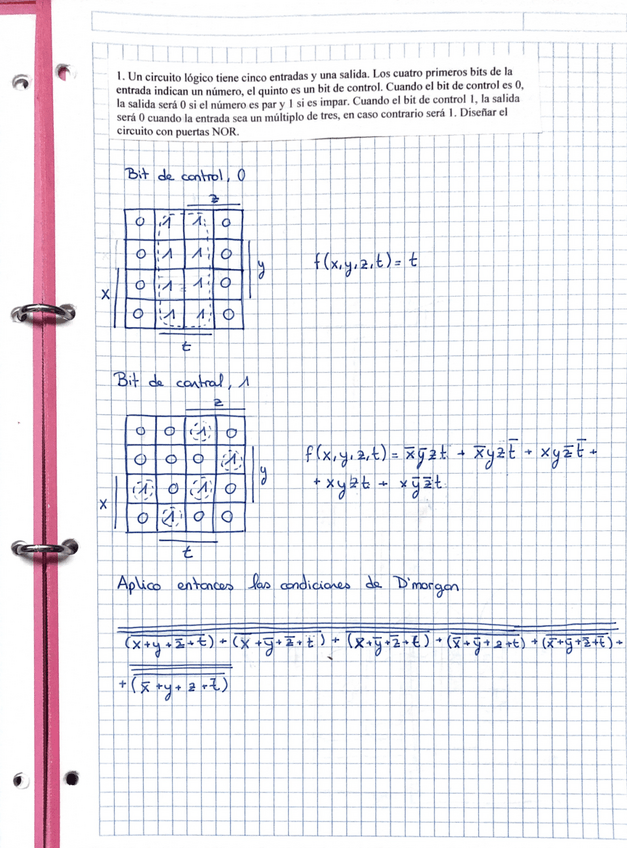 1. Un circuito lógico tiene cinco entradas y una salida. Los cuatro primeros bits de la
entrada indican un número, el quinto es un bit de control. Cuando el bit de control es 0,
la salida será 0 si el número es par y 1 si es impar. Cuando el bit de control 1, la salida
será 0 cuando la entrada sea un múltiplo de tres, en caso contrario será 1. Diseñar el
circuito con puertas NOR.
Bit de control, 0
z
0 1 1 0
0 1 1 0
y
f(x,y,z,t) = t
x
0 1 1 0
0 1 1 0
t
Bit de control, 1
z
0 0 1 0
0 0 0 1
y
f(x,y,z,t) = x̄ȳzt + x̄yzt̄ + xyz̄t̄ +
+ xyzt + xȳz̄t
x
1 0 1 0
0 1 0 0
t
Aplico entonces las condiciones de D'morgan
(x+y+z̄+t) + (x+ȳ+z̄+t) + (x+ȳ+z̄+t) + (x̄+ȳ+z+t) + (x̄+ȳ+z̄+t̄) +
+ (x̄+y+z+t̄)